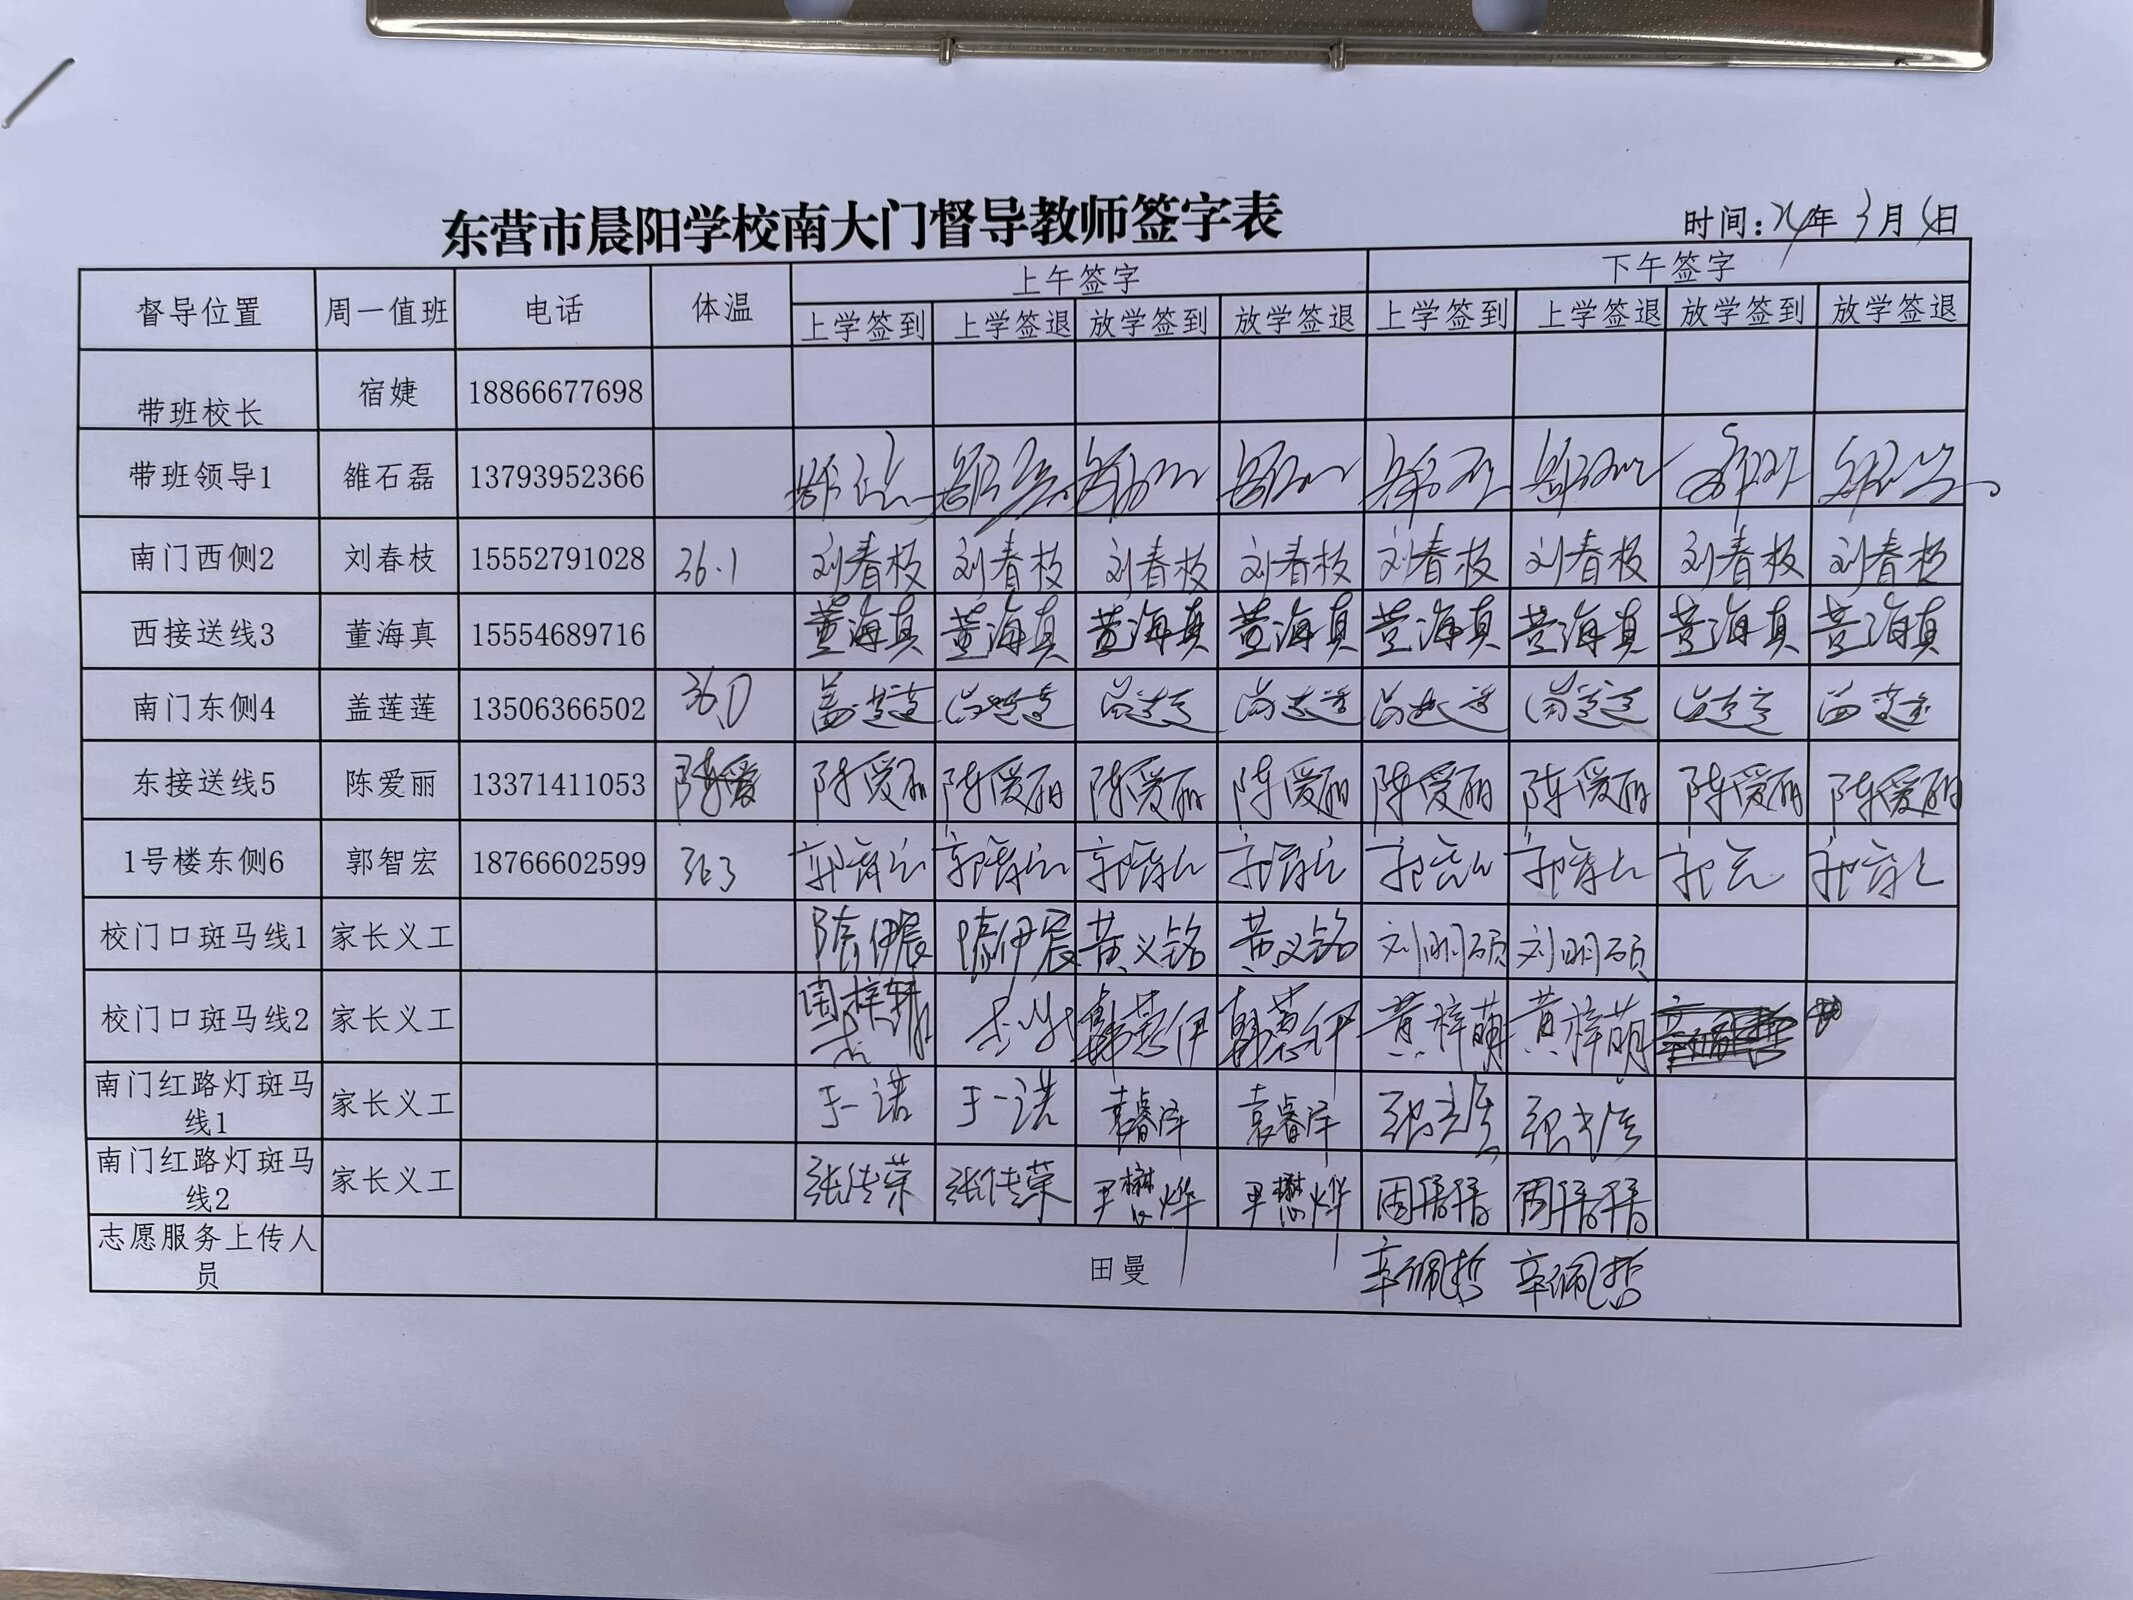 东营市晨阳学校南大门督导教师签字表
时间: 24年 3月 4日
督导位置 周一值班 电话 体温 上午签字 下午签字
上学签到 上学签退 放学签到 放学签退 上学签到 上学签退 放学签到 放学签退
带班校长 宿婕 18866677698
带班领导1 雒石磊 13793952366
南门西侧2 刘春枝 15552791028 36.1 刘春枝 刘春枝 刘春枝 刘春枝 刘春枝 刘春枝 刘春枝 刘春枝
西接送线3 董海真 15554689716 董海真 董海真 董海真 董海真 董海真 董海真 董海真 董海真
南门东侧4 盖莲莲 13506366502 36.0 盖莲莲 盖莲莲 盖莲莲 盖莲莲 盖莲莲 盖莲莲 盖莲莲 盖莲莲
东接送线5 陈爱丽 13371411053 陈爱 陈爱丽 陈爱丽 陈爱丽 陈爱丽 陈爱丽 陈爱丽 陈爱丽 陈爱丽
1号楼东侧6 郭智宏 18766602599 363 郭智宏 郭智宏 郭智宏 郭智宏 郭智宏 郭智宏 郭宏 郭智宏
校门口斑马线1 家长义工 隋伊宸 隋伊宸 黄义铭 黄义铭 刘明硕 刘明硕
校门口斑马线2 家长义工 韩慕伊 韩慕伊 黄梓萌 黄梓萌
南门红路灯斑马线1 家长义工 于一诺 于一诺 袁睿泽 袁睿泽
南门红路灯斑马线2 家长义工 张传荣 张传荣 尹懋烨 尹懋烨
志愿服务上传人员 田曼 辛佩哲 辛佩哲